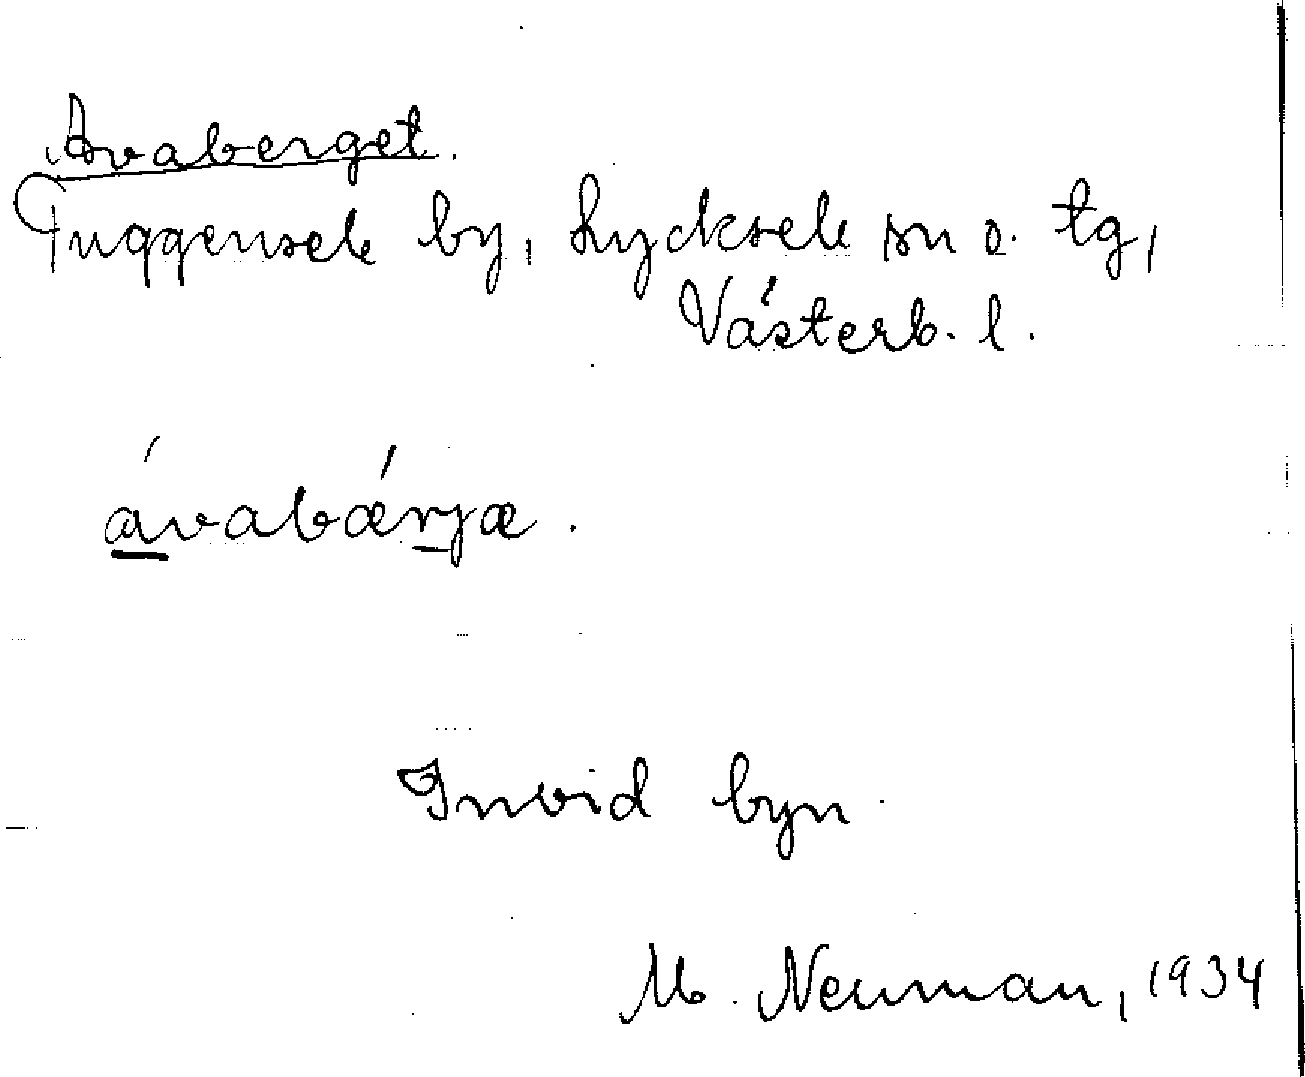 Avaberget.
Tuggensele by, Lycksele sn o. tg,
Västerb. l.
ávabǽrjæ.
Invid byn.
M. Neuman, 1934